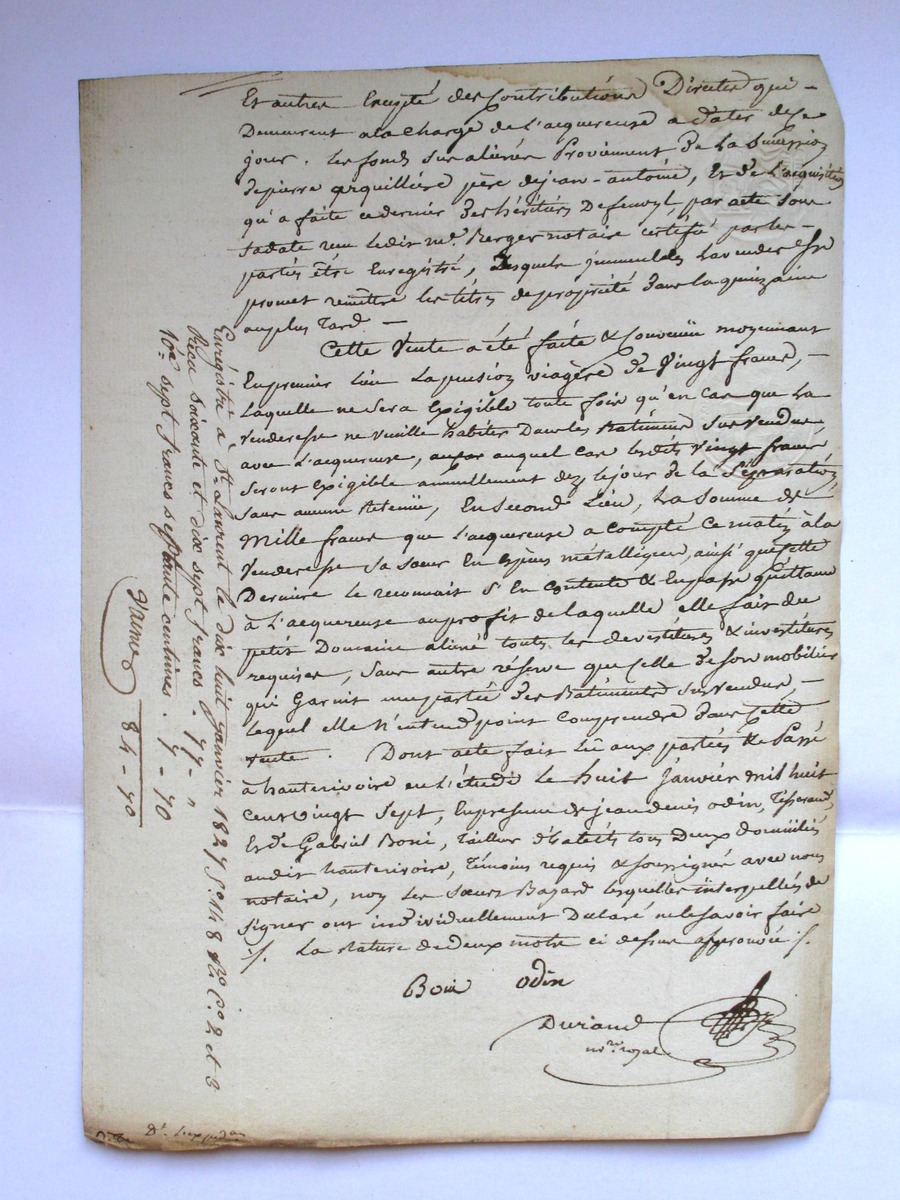 Et autres Excepté des Contributions Directes qui -
Demeurent a la Charge de l'acquereuse a dater de ce
jour. les fonds sus aliénés Proviennent de la Succession
de pierre arquilliere père de jean-antoine, Et de l'acquisition
qu'a faite ce dernier des héritiers Defenoyl, par acte sous
sa date reçu ledit me. Berger notaire certifié par les -
parties être Enregistré, desquels immeubles la venderesse
promet remettre les titres de propriété dans la quinzaine
au plus tard -
Cette Vente a été faite & Convenüe moyennant
En premier Lieu La pension viagère de Vingt francs, -
Laquelle ne sera Exigible toute fois qu'en Cas que La
Venderesse ne veuille habiter Dans les Batiments Sus vendus,
avec L'acquereuse, auquel cas lesdits Vingt francs
Seront Exigible annuellement dez le jour de la Séparation
Sans aucune Retenüe, En Second Lieu, La Somme de
Mille francs que L'acquereuse a compté Ce matin à la
Venderesse Sa sœur En Espèces métalliques, ainsi que cette
Derniere le reconnait S'En Contente & En passe quittance
à L'acquereuse au profit de laquelle elle fait du
petit Domaine aliéné toutes les devestitures & investitures
requises, Sans autre réserve que Celle de son mobilier
qui Garnit une partie des Batiments Sus Vendus, -
lequel elle N'intend point Comprendre dans Cette
Vente. Dont acte fait lu aux parties & Passé
à hauterivoire en L'étude Le huit Janvier mil huit
Cent vingt Sept, En presence de jean denis odin, Tisserand,
Et de Gabriel Boni, Tailleur d'habits tous Deux domiciliés
audit hauterivoire, Témoins requis & soussignés avec nous
notaire, non les Sœurs Bazard lesquelles interpellés de
Signer ont individuellement Déclaré ne le savoir faire
/. La rature de deux mots ci dessus approuvée /.
Boni odin
Durand
nore. royal
Enregistré à St. Laurent le dix huit Janvier 1827 fo. 148 Ro. Co. 2 et 3
Reçu soixante et dix sept francs - 77 - "
10e. sept francs septante centimes . 7 - 70
84 - 70